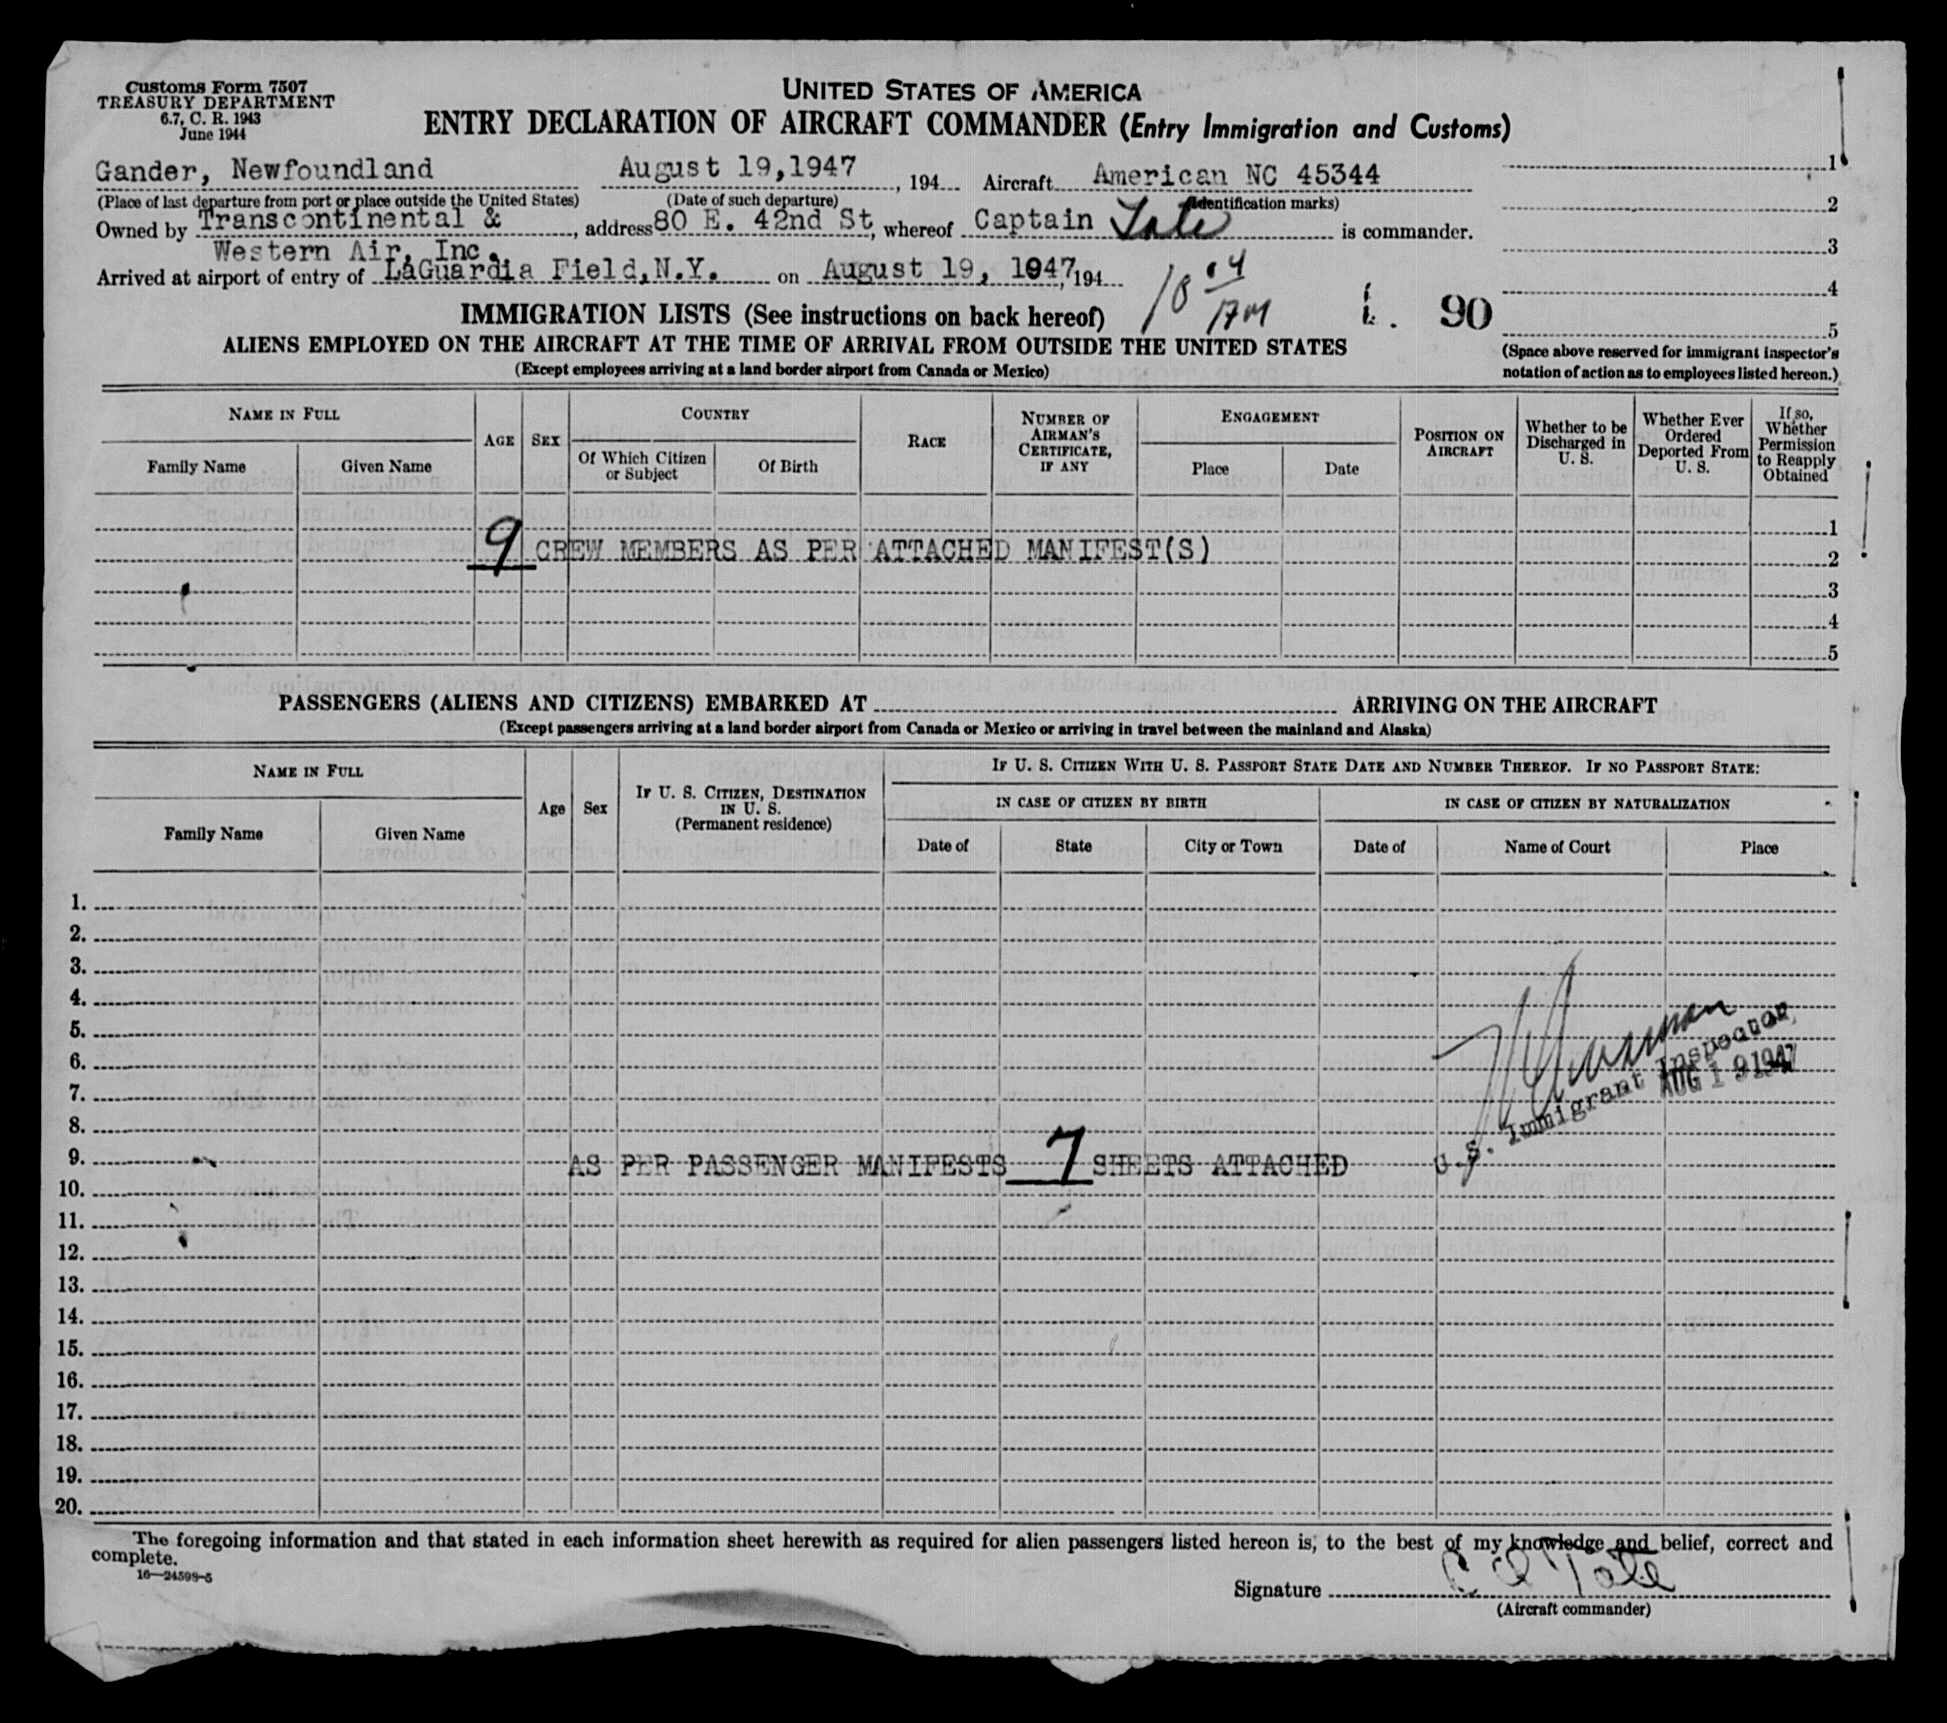 Customs Form 7507
TREASURY DEPARTMENT
6.7, C. R. 1943
June 1944
UNITED STATES OF AMERICA
ENTRY DECLARATION OF AIRCRAFT COMMANDER (Entry Immigration and Customs)
Gander, Newfoundland August 19,1947, 194 Aircraft American NC 45344
(Place of last departure from port or place outside the United States) (Date of such departure) (Identification marks)
Owned by Transcontinental & , address 80 E. 42nd St, whereof Captain Tate is commander.
Western Air, Inc.
Arrived at airport of entry of LaGuardia Field,N.Y. on August 19, 1947, 194
10 04 AM
90
1
2
3
4
5
(Space above reserved for immigrant inspector's
notation of action as to employees listed hereon.)
IMMIGRATION LISTS (See instructions on back hereof)
ALIENS EMPLOYED ON THE AIRCRAFT AT THE TIME OF ARRIVAL FROM OUTSIDE THE UNITED STATES
(Except employees arriving at a land border airport from Canada or Mexico)
NAME IN FULL
Family Name
Given Name
AGE
SEX
COUNTRY
Of Which Citizen
or Subject
Of Birth
RACE
NUMBER OF
AIRMAN'S
CERTIFICATE,
IF ANY
ENGAGEMENT
Place
Date
POSITION ON
AIRCRAFT
Whether to be
Discharged in
U. S.
Whether Ever
Ordered
Deported From
U. S.
If so,
Whether
Permission
to Reapply
Obtained
1
9 CREW MEMBERS AS PER ATTACHED MANIFEST(S) 2
3
4
5
PASSENGERS (ALIENS AND CITIZENS) EMBARKED AT ARRIVING ON THE AIRCRAFT
(Except passengers arriving at a land border airport from Canada or Mexico or arriving in travel between the mainland and Alaska)
NAME IN FULL
Family Name
Given Name
Age
Sex
IF U. S. CITIZEN, DESTINATION
IN U. S.
(Permanent residence)
IF U. S. CITIZEN WITH U. S. PASSPORT STATE DATE AND NUMBER THEREOF. IF NO PASSPORT STATE:
IN CASE OF CITIZEN BY BIRTH
IN CASE OF CITIZEN BY NATURALIZATION
Date of
State
City or Town
Date of
Name of Court
Place
1.
2.
3.
4.
5.
6.
7.
8.
U. S. Immigrant Inspector
AUG 19 1947
9. AS PER PASSENGER MANIFESTS 7 SHEETS ATTACHED
10.
11.
12.
13.
14.
15.
16.
17.
18.
19.
20.
The foregoing information and that stated in each information sheet herewith as required for alien passengers listed hereon is, to the best of my knowledge and belief, correct and
complete.
16—24598-5
Signature C Tate
(Aircraft commander)